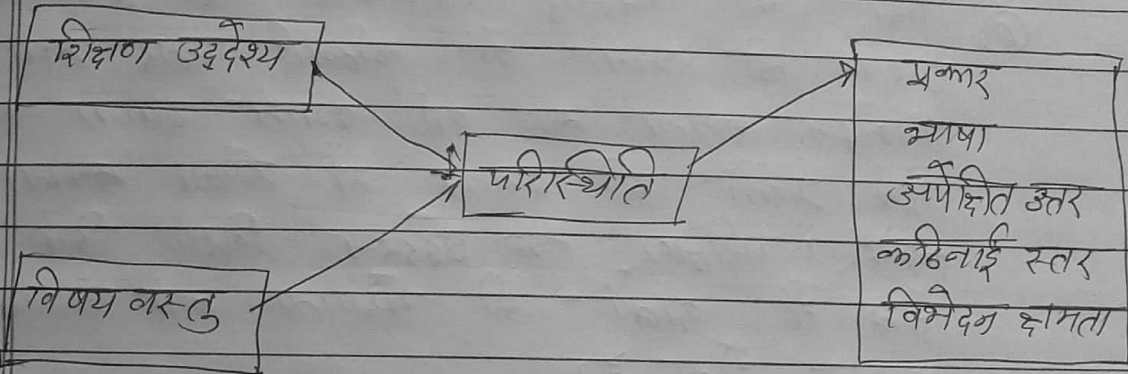 शिक्षण उद्देश्य
विषय वस्तु
परिस्थिति
प्रकार
भाषा
अपेक्षित उत्तर
कठिनाई स्तर
विभेदन क्षमता